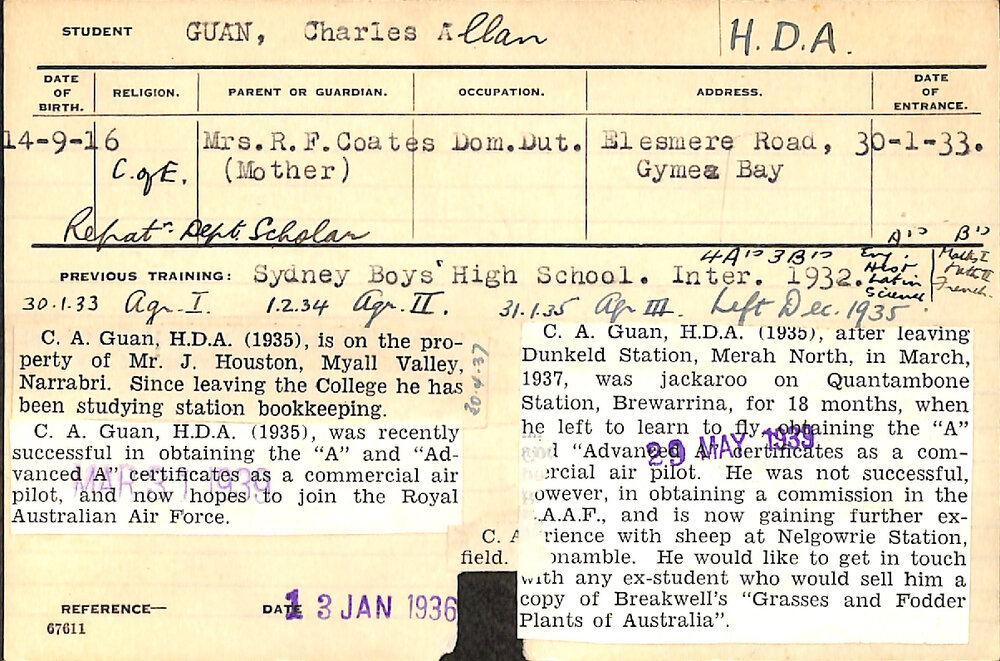 STUDENT GUAN, Charles Allan H.D.A.
DATE OF BIRTH. RELIGION. PARENT OR GUARDIAN. OCCUPATION. ADDRESS. DATE OF ENTRANCE.
14-9-16 Mrs.R.F.Coates Dom.Dut. Elesmere Road, 30-1-33.
C.ofE. (Mother) Gymea Bay
Repatn. Dept. Scholar
A's B's
4A's 3B's Eng. Hist Latin Science Maths I Math II French.
PREVIOUS TRAINING: Sydney Boys' High School. Inter. 1932.
30.1.33 Agr. I. 1.2.34 Agr. II. 31.1.35 Agr III. Left Dec. 1935.
C. A. Guan, H.D.A. (1935), is on the pro-
perty of Mr. J. Houston, Myall Valley,
Narrabri. Since leaving the College he has
been studying station bookkeeping.
20-4-37
C. A. Guan, H.D.A. (1935), was recently
successful in obtaining the "A" and "Ad-
vanced A" certificates as a commercial air
pilot, and now hopes to join the Royal
Australian Air Force.
MAR 31 1939
C. A. Guan, H.D.A. (1935), after leaving
Dunkeld Station, Merah North, in March,
1937, was jackaroo on Quantambone
Station, Brewarrina, for 18 months, when
he left to learn to fly, obtaining the "A"
and "Advanced A" certificates as a com-
ercial air pilot. He was not successful,
owever, in obtaining a commission in the
.A.A.F., and is now gaining further ex-
rience with sheep at Nelgowrie Station,
onamble. He would like to get in touch
with any ex-student who would sell him a
copy of Breakwell's "Grasses and Fodder
Plants of Australia".
29 MAY 1939
C. A
field.
REFERENCE— DATE 13 JAN 1936
67611